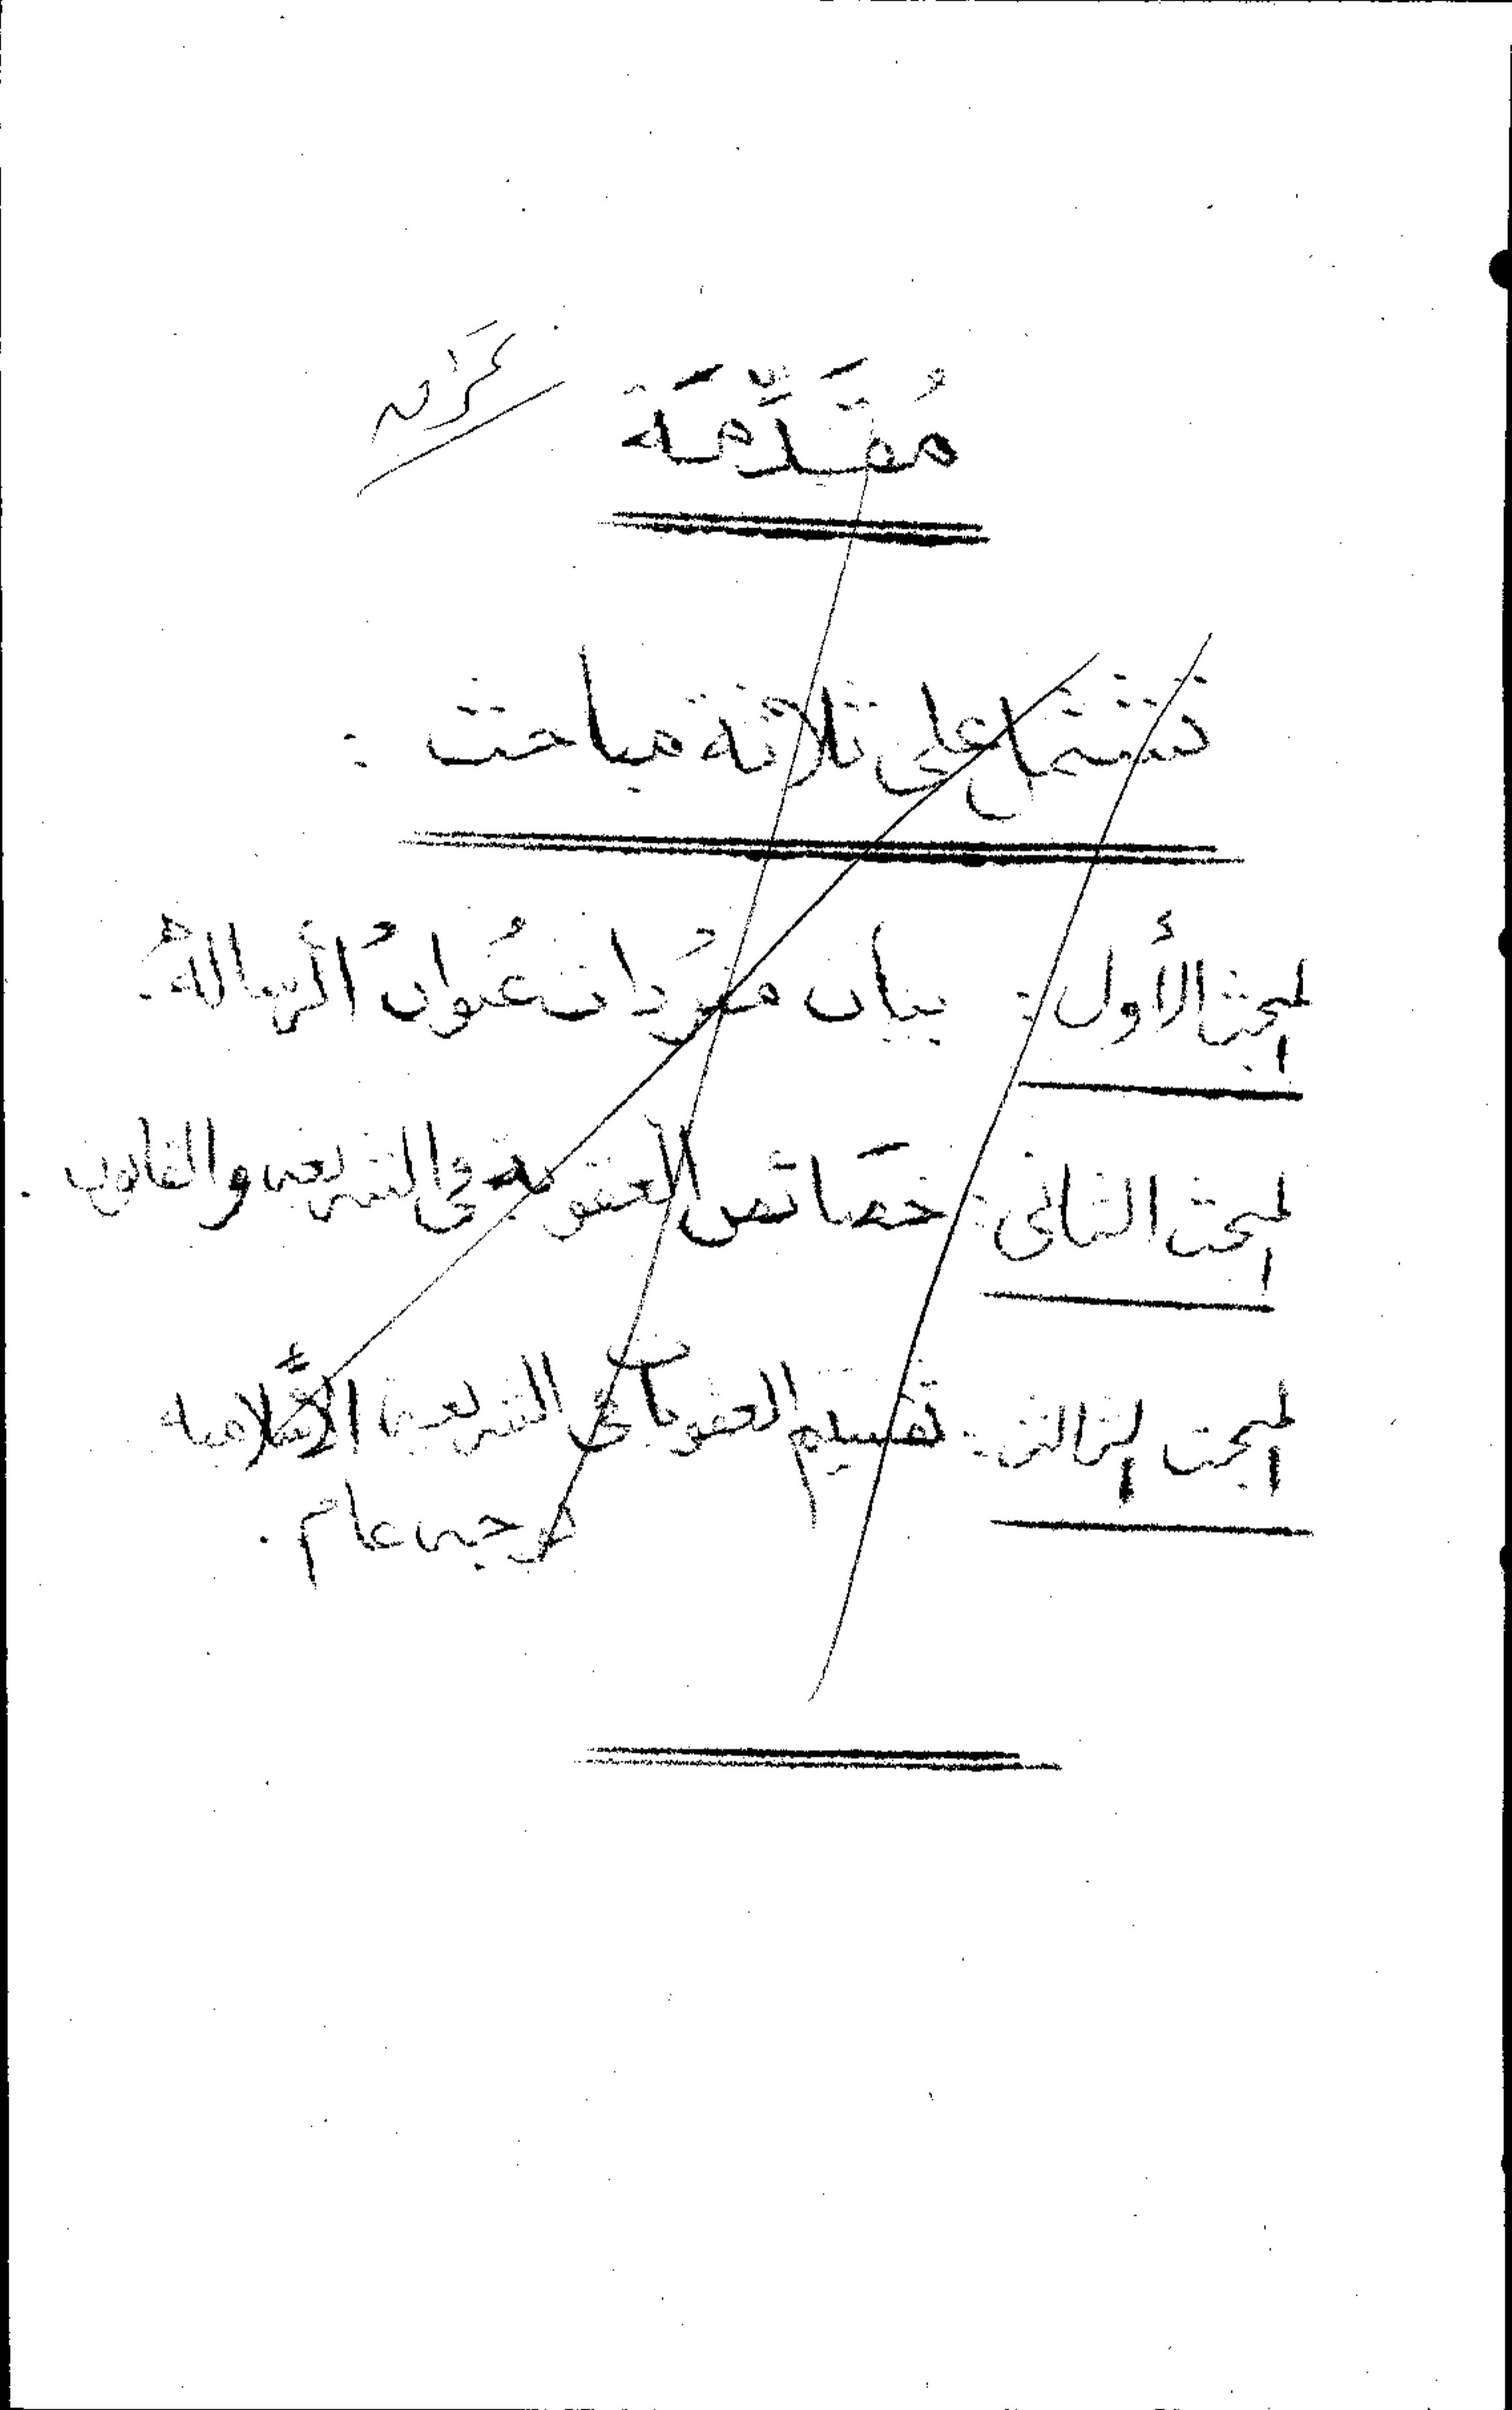 مُقَدِّمَة
تشتمل على ثلاثة مباحث :
المبحث الأول : بيان مفرُدات عُنوانُ الرسالة .
المبحث الثانى : خصَائص العقوبة فى الشريعه والقانون .
المبحث الثالث : تقسيم العقوبات فى الشريعه الإسلاميه
بوجه عام .